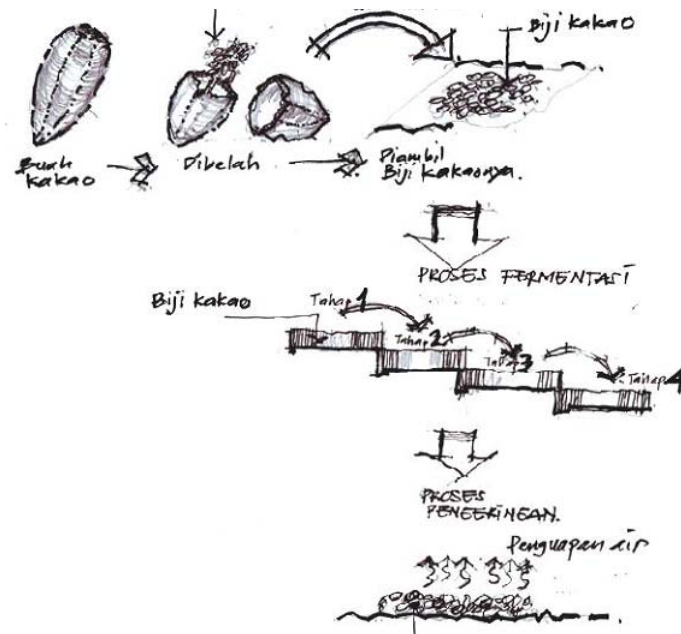 Biji kakao
Buah
kakao
Dibelah
Diambil
Biji kakaonya.
PROSES FERMENTASI
Biji kakao
Tahap 1
Tahap 2
Tahap 3
Tahap 4
PROSES
PENGERINGAN.
Penguapan air